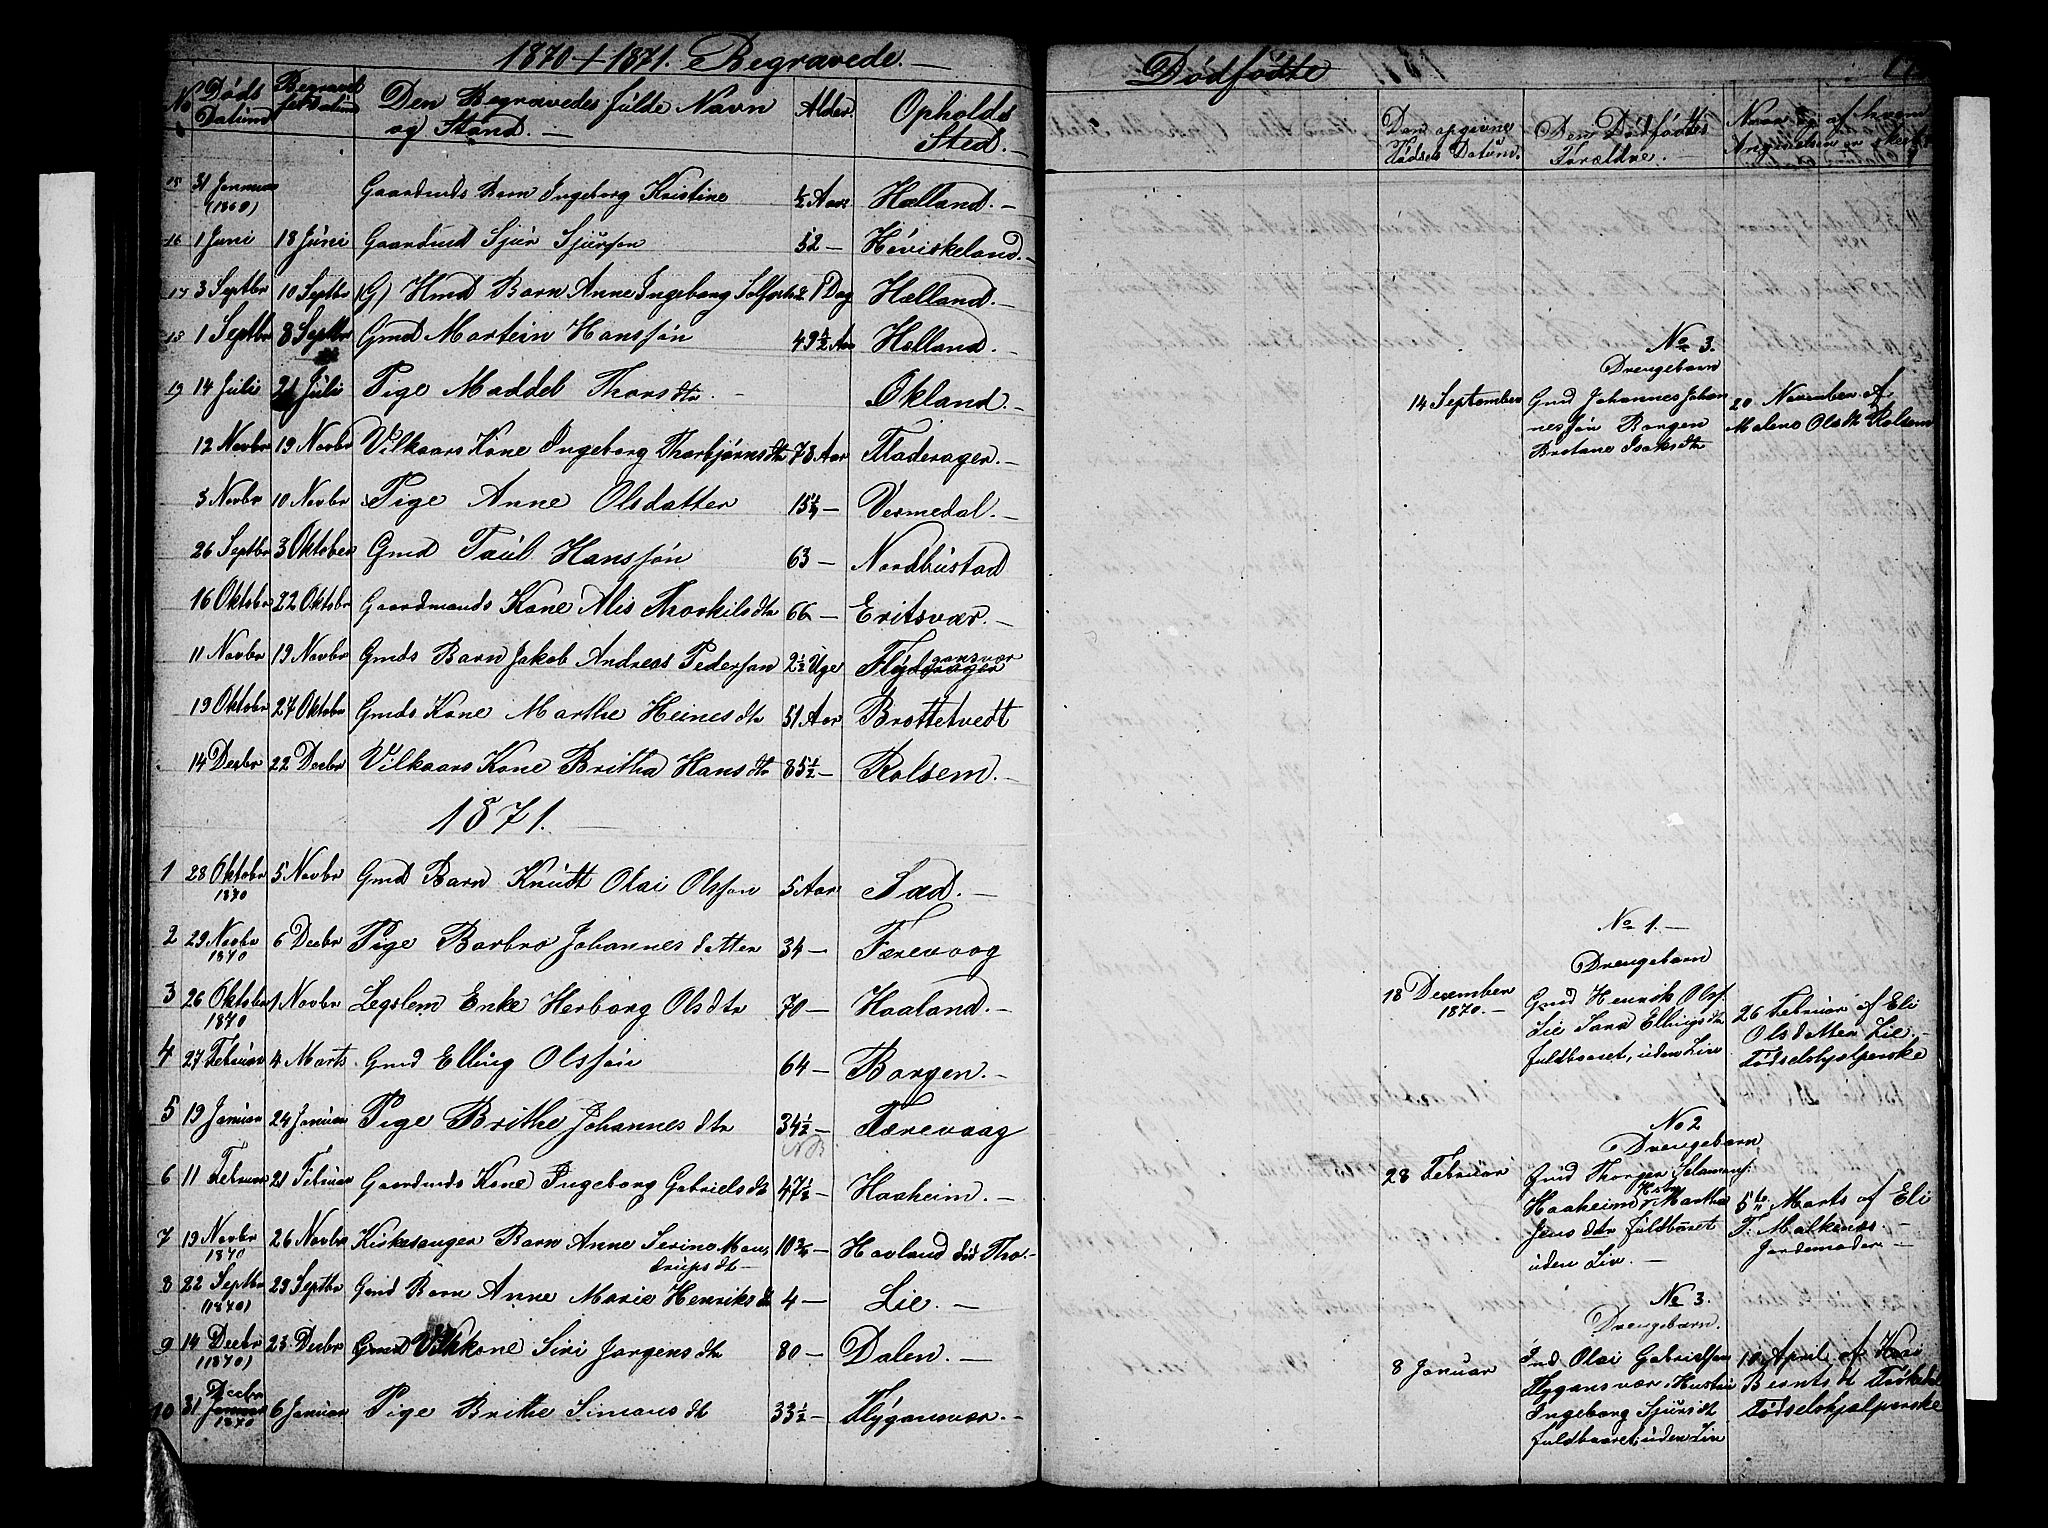 1870 + 1871. Begravede. —
No Døds Datum Begravelses Datum Den Begravedes fulde Navn og Stand. — Alder. Opholds Sted. —
15 31 Januar (1860) Gaardmds Barn Ingeborg Kristine ½ Aar Hælland. —
16 1 Juni 18 Juni Gaardmd Sjur Sjursøn 52 — Høviskeland. —
17 3 Septbr 10 Septbr (G) Hmd Barn Anne Ingeborg 1 Dag Hælland. —
18 1 Septbr 8 Septbr Gmd Martein Hanssøn 49½ Aar Hælland. —
19 14 Juli 21 Juli Pige Maddel Thorsdtr. — Økland. —
12 Novbr 19 Novbr Vilkaars Kone Ingeborg Thorbjørnsdtr 78 Aar Fladerager. —
5 Novbr 10 Novbr Pige Anne Olsdatter 15¼ — Vermedal. —
26 Septbr 3 Oktober Gmd Paul Hanssøn 63 — Nordbustad
16 Oktobr 22 Oktobr Gaardmands Kone Alis Thorkilsdtr 66 — Eritsvær. —
11 Novbr 19 Novbr Gmds Barn Jakob Andreas Pedersøn 2½ Uge Flygansvær
19 Oktobr 27 Oktobr Gmds Kone Marthe Heinesdtr 51 Aar Brottetvedt
14 Decbr 22 Decbr Vilkaars Kone Britha Hansdtr 85½ — Rolsem. —
1871. —
1 28 Oktobr 1870 5 Novbr Gmd Barn Knudt Olai Olssøn 5 Aar Sæd. —
2 29 Novbr 1870 6 Decbr Pige Barbro Johannesdatter 34 — Færevaag
3 26 Oktobr 1870 1 Novbr Legslem Enke Herborg Olsdtr 70 — Haaland. —
4 27 Februar 4 Marts Gmd Elling Olssøn 64 — Børgen. —
5 19 Januar 24 Januar Pige Brithe Johannesdtr 34½ — Færevaag
NB
6 11 Februar 21 Februar Gaardmds Kone Ingeborg Gabrielsdtr 47½ — Haaheim. —
7 19 Novbr 1870 26 Novbr Kirkesanger Barn Anne Serine Monsdrupsdtr 10¾ — Havland. —
8 22 Septbr (1870) 29 Septbr Gmd Barn Anne Marie Henriksdtr 4 — Lie. —
9 14 Decbr (1870) 23 Decbr Gmd Vilkkone Siri Jørgensdtr 80 — Dalen. —
10 31 Decbr 1870 6 Januar Pige Brithe Simonsdtr 33½ — Flygansvær. —
Dødfødte
Den opgivne Fødsels Datum. Den Dødfødtes Forældre. — Naar og af hvem Angivelsen er skeet
No 3.
Drengebarn
14 September Gmd Johannes Johannessøn Børgen Bertane Isaksdtr 20 November af Malene Olsdtr Rolsem
No 1. —
Drengebarn
18 December 1870. — Gmd Henrik Olss. Lie Sara Ellingsdtr fuldbaaret, uden Liv 26 Februar af Eli Olsdatter Lie. — Fødselshjelperske
No 2
Drengebarn
28 Februar Gmd Thorger Salamons. Haaheim Hstr Martha Jensdtr fuldbaaret uden Liv. — 5te Marts af Eli T. Malkenæs. — Jordemoder. —
No 3.
Drengebarn.
8 Januar Gmd Olai Gabrielsøn Flygansvær, Hustru Ingeborg Sjursdt fuldbaaret, uden Liv 10 April af Kari Berntsdt Fødselshjelperske